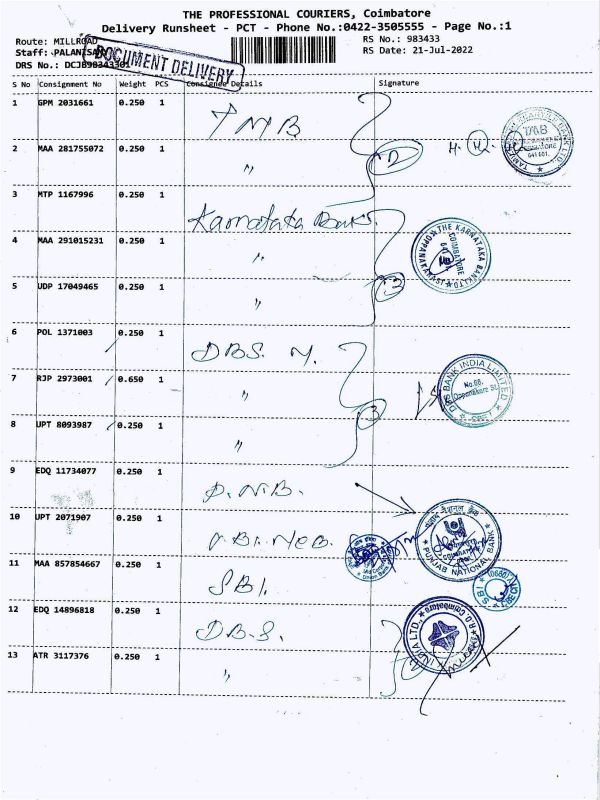 THE PROFESSIONAL COURIERS, Coimbatore
Delivery Runsheet - PCT - Phone No.:0422-3505555 - Page No.:1
Route: MILLROAD
RS No.: 983433
Staff: PALANISA
RS Date: 21-Jul-2022
DRS No.: DCJB98343301
DOCUMENT DELIVERY
S No Consignment No Weight PCS Consignee Details Signature
1 GPM 2031661 0.250 1 TMB
2 MAA 281755072 0.250 1 "
3 MTP 1167996 0.250 1 Karnataka Bank
4 MAA 291015231 0.250 1 "
5 UDP 17049465 0.250 1 "
6 POL 1371003 0.250 1 DBS.
7 RJP 2973001 0.650 1 "
8 UPT 8093987 0.250 1 "
9 EDQ 11734077 0.250 1 P.N.B.
10 UPT 2071907 0.250 1
11 MAA 857854667 0.250 1 SBI.
12 EDQ 14896818 0.250 1 D.B.S.
13 ATR 3117376 0.250 1 "
TMB
COIMBATORE
641 001.
THE KARNATAKA BANK LTD
COIMBATORE
DBS BANK INDIA LIMITED
No.68,
Oppanakara St.
पंजाब नैशनल बैंक
PUNJAB NATIONAL BANK
Union Bank
SBI
INDIA LTD.,
R.O Coimbatore